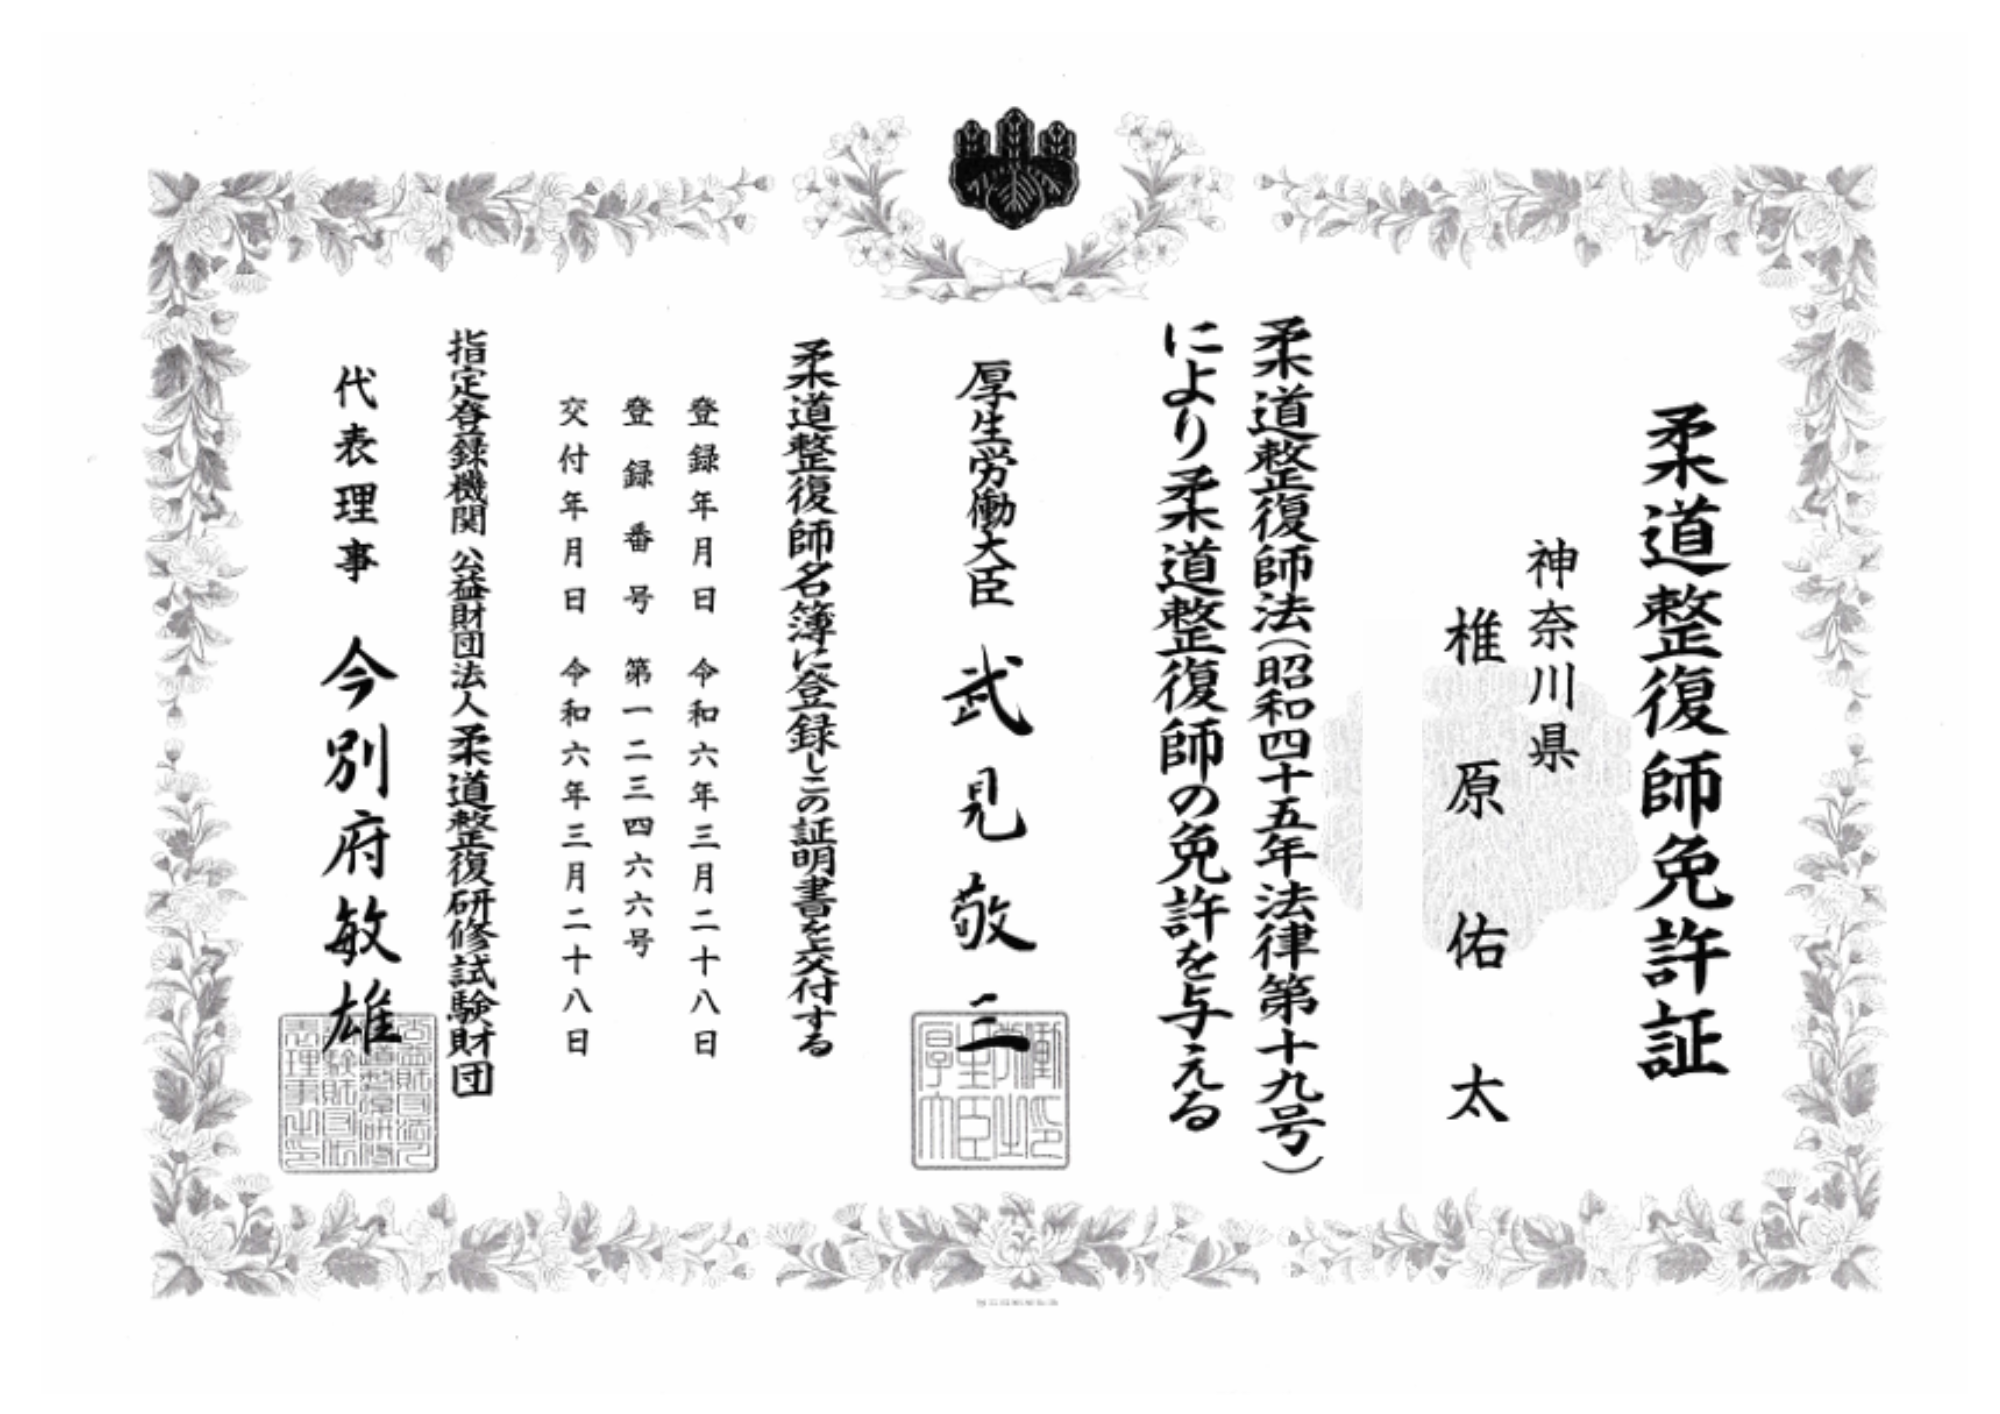 柔道整復師免許証
神奈川県
椎原佑太
柔道整復師法(昭和四十五年法律第十九号)
により柔道整復師の免許を与える
厚生労働大臣 武見敬三
柔道整復師名簿に登録しこの証明書を交付する
登録年月日 令和六年三月二十八日
登録番号 第一二三四六六号
交付年月日 令和六年三月二十八日
指定登録機関 公益財団法人柔道整復研修試験財団
代表理事 今別府敏雄